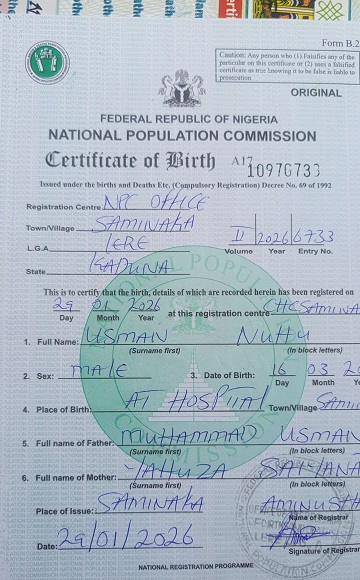 Form B.2
Caution: Any person who (1) Falsifies any of the
particular on this certificate or (2) uses a falsified
certificate as true knowing it to be false is liable to
prosecution
ORIGINAL
FEDERAL REPUBLIC OF NIGERIA
NATIONAL POPULATION COMMISSION
Certificate of Birth A17 10976733
Issued under the births and Deaths Etc. (Compulsory Registration) Decree No. 69 of 1992
Registration Centre NPC OFFICE
Town/Village SAMINAKA
L.G.A. LERE
State KADUNA
II 2026 6733
Volume Year Entry No.
This is to certify that the birth, details of which are recorded herein has been registered on
29 01 2026 at this registration centre CHC SAMINA
Day Month Year
1. Full Name: USMAN NUHU
(Surname first) (In block letters)
2. Sex: MALE 3. Date of Birth: 16 03 20
Day Month Y
4. Place of Birth: AT HOSPITAL Town/Village SAMIN
5. Full name of Father: MUHAMMAD USMAN
(Surname first) (In block letters)
6. Full name of Mother: YAHUZA
(Surname first) (In block letters)
Place of Issue: SAMINAKA AMINU
Name of Registrar
Date: 29/01/2026
Signature of Registrar
NATIONAL REGISTRATION PROGRAMME